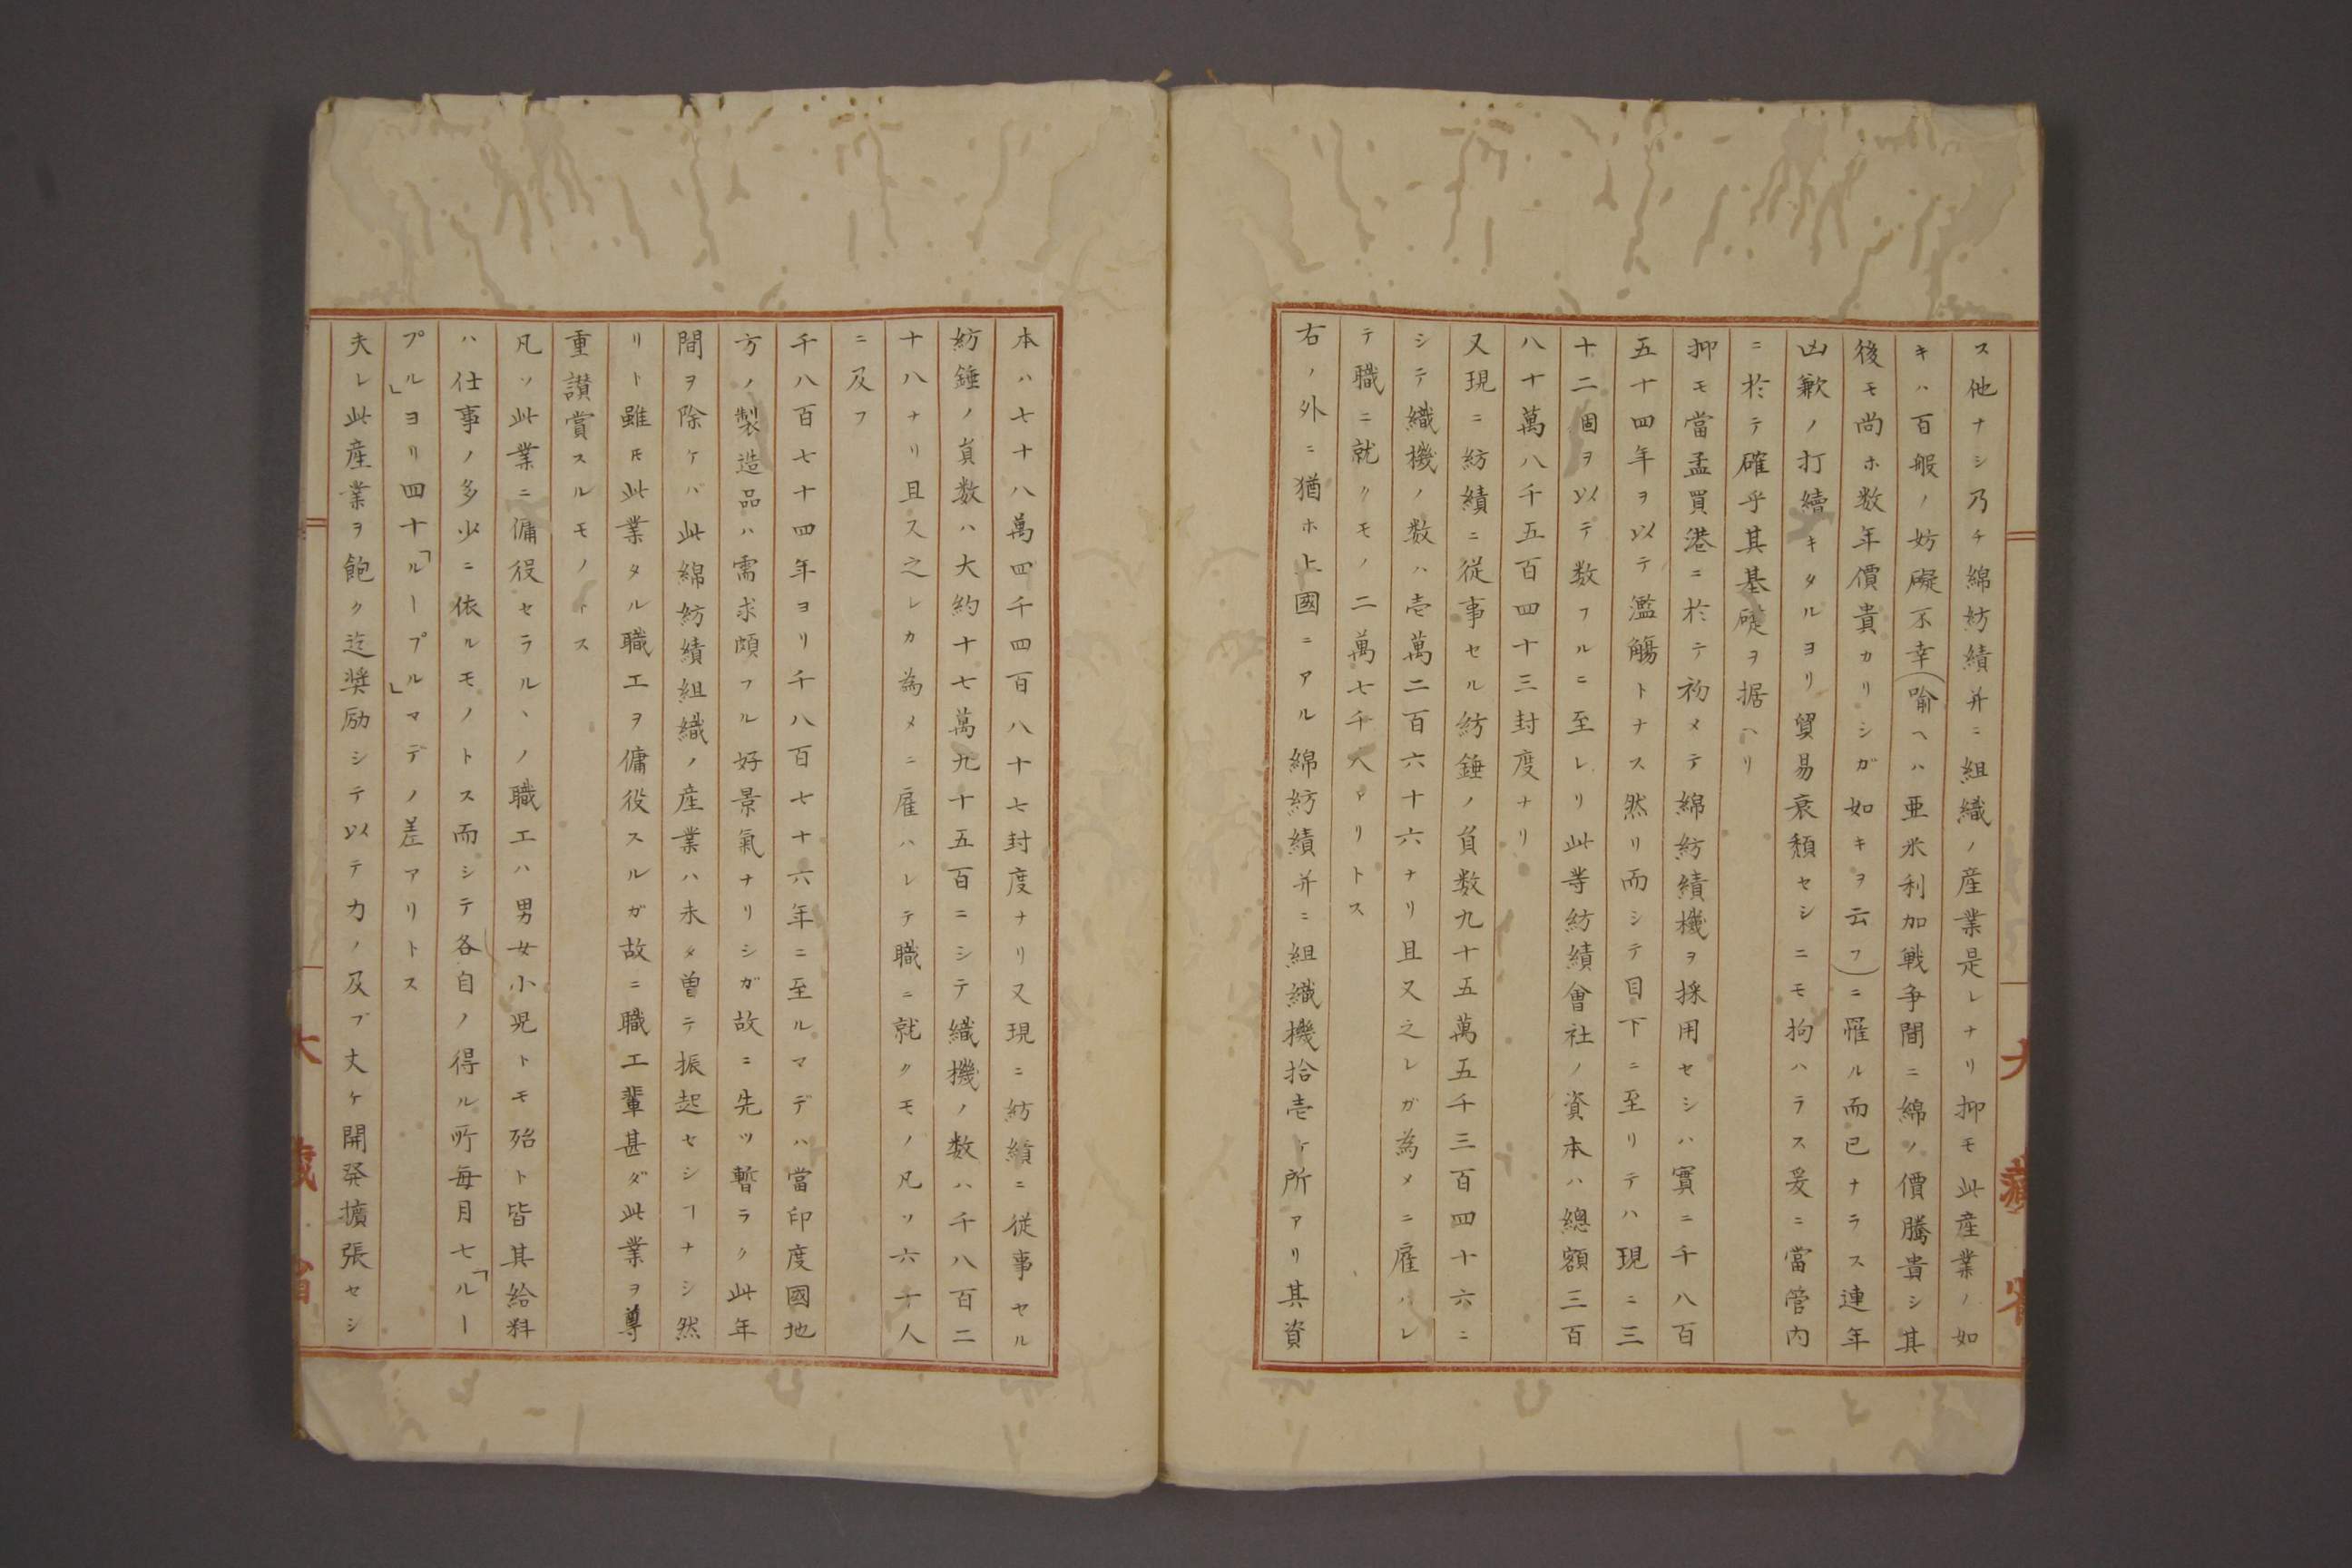 ス他ナシ乃チ綿紡績并ニ組織ノ産業是レナリ抑モ此産業ノ如
キハ百般ノ妨礙不幸(喩ヘハ亜米利加戦争間ニ綿ノ價騰貴シ其
後モ尚ホ数年價貴カリシガ如キヲ云フ)ニ罹ル而已ナラス連年
凶歉ノ打續キタルヨリ貿易衰頽セシニモ拘ハラス爰ニ當管内
ニ於テ確乎其基礎ヲ据ヘリ
抑モ當孟買港ニ於テ初メテ綿紡績機ヲ採用セシハ實ニ千八百
五十四年ヲ以テ濫觴トナス然リ而シテ目下ニ至リテハ現ニ三
十二個ヲ以テ数フルニ至レリ此等紡績會社ノ資本ハ總額三百
八十萬八千五百四十三封度ナリ
又現ニ紡績ニ従事セル紡錘ノ員数九十五萬五千三百四十六ニ
シテ織機ノ数ハ壱萬二百六十六ナリ且又之レガ為メニ雇ハレ
テ職ニ就クモノ二萬七千人アリトス
右ノ外ニ猶ホ上國ニアル綿紡績并ニ組織機拾壱ヶ所アリ其資
本ハ七十八萬四千四百八十七封度ナリ又現ニ紡績ニ従事セル
紡錘ノ員数ハ大約十七萬九十五百ニシテ織機ノ数ハ千八百二
十八ナリ且ス之レカ為メニ雇ハレテ職ニ就クモノ凡ソ六十人
ニ及フ
千八百七十四年ヨリ千八百七十六年ニ至ルマデハ當印度國地
方ノ製造品ハ需求頗フル好景氣ナリシガ故ニ先ツ暫ラク此年
間ヲ除ケバ此綿紡績組織ノ産業ハ未タ曽テ振起セシヿナシ然
リト雖𪜈此業タル職工ヲ傭役スルガ故ニ職工輩甚ダ此業ヲ尊
重讃賞スルモノトス
凡ソ此業ニ傭役セラルヽノ職工ハ男女小児トモ殆ト皆其給料
ハ仕事ノ多少ニ依ルモノトス而シテ各自ノ得ル所毎月七「ルー
プル」ヨリ四十「ループル」マデノ差アリトス
夫レ此産業ヲ飽ク迄奨励シテ以テ力ノ及ブ丈ケ開発擴張セシ
大藏省
大藏省